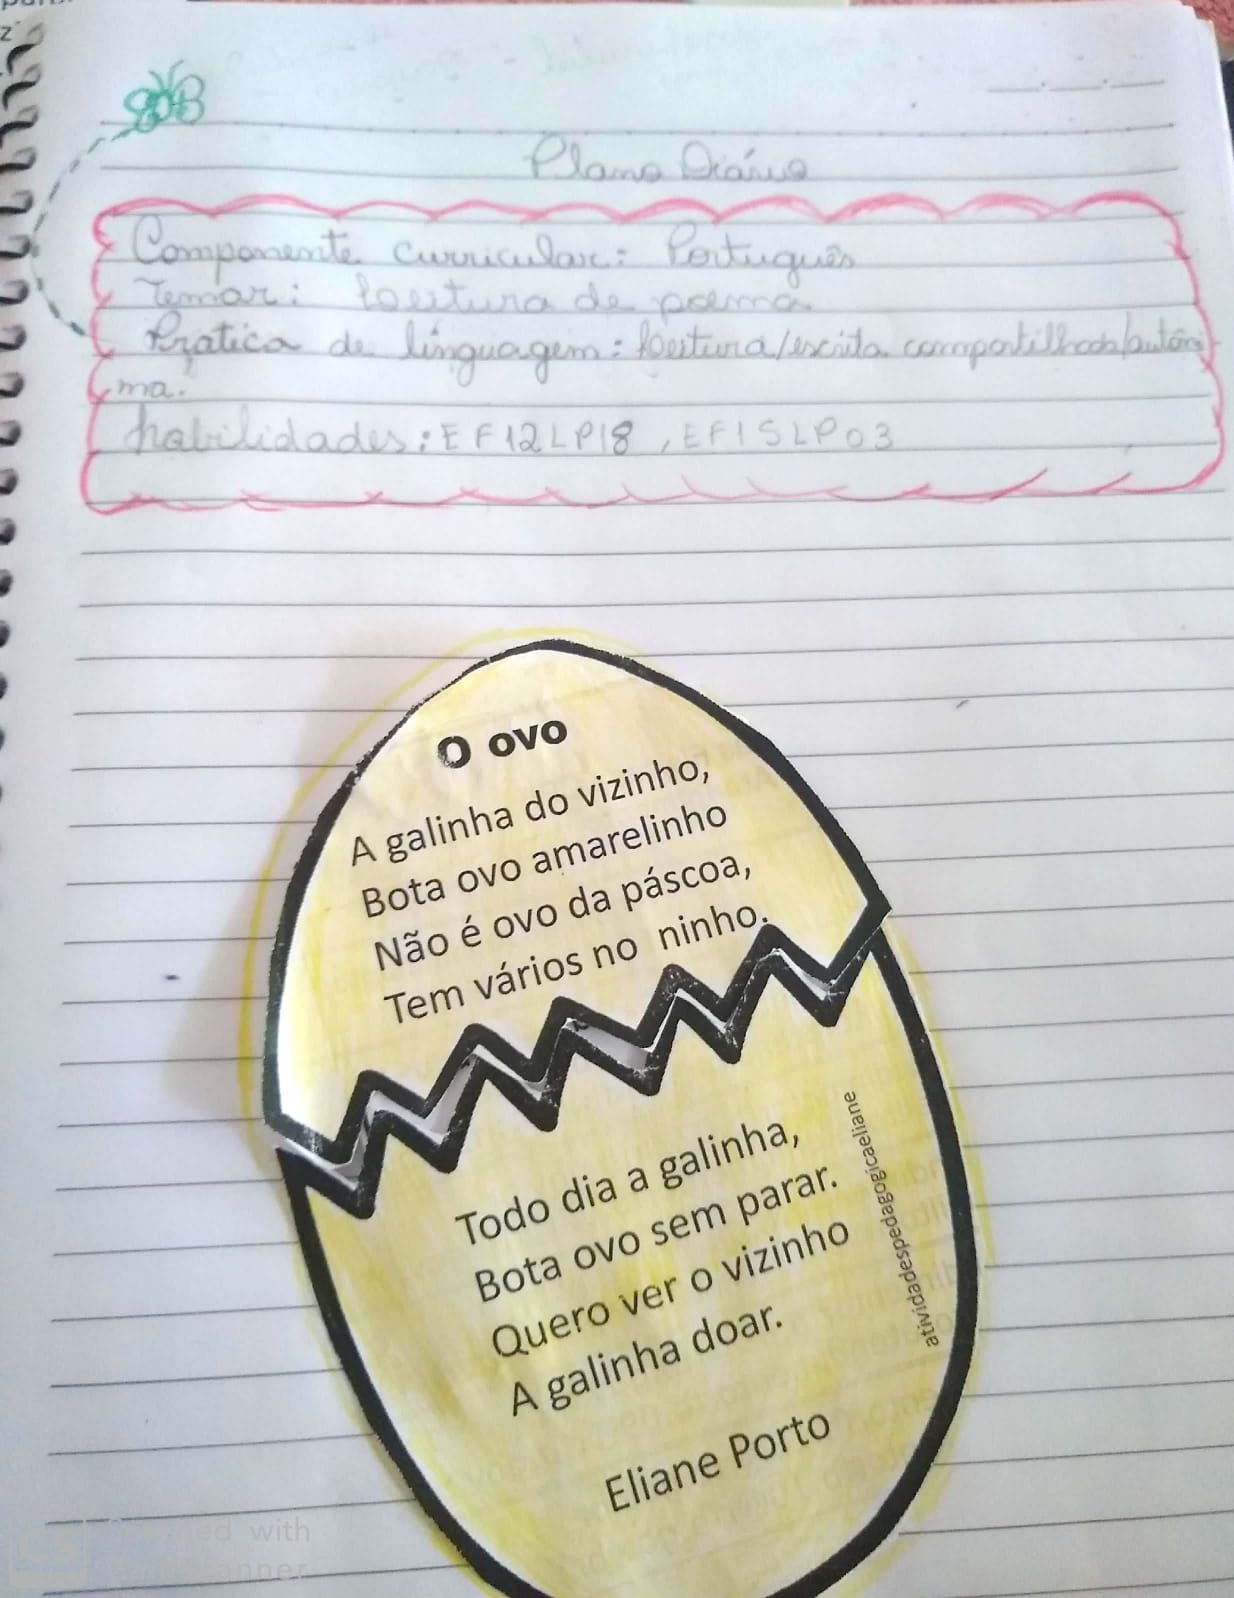 Plano Diário
Componente curricular: Português
Temar: Leitura de poema
Pratica de linguagem: Leitura/escrita compartilhada/autôno
ma.
habilidades: EF12LP18, EF15LP03
O ovo
A galinha do vizinho,
Bota ovo amarelinho
Não é ovo da páscoa,
Tem vários no ninho.
Todo dia a galinha,
Bota ovo sem parar.
Quero ver o vizinho
A galinha doar.
Eliane Porto
atividadespedagogicaeliane
CS
Scanned with
CamScanner